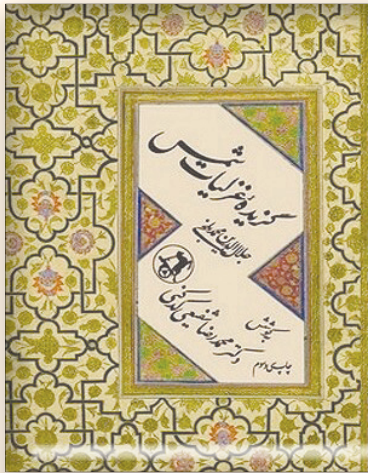 گزیدهٔ غزلیات شمس
جلال‌الدین محمد بلخی
بکوشش
دکتر محمدرضا شفیعی کدکنی
چاپ سی و سوم